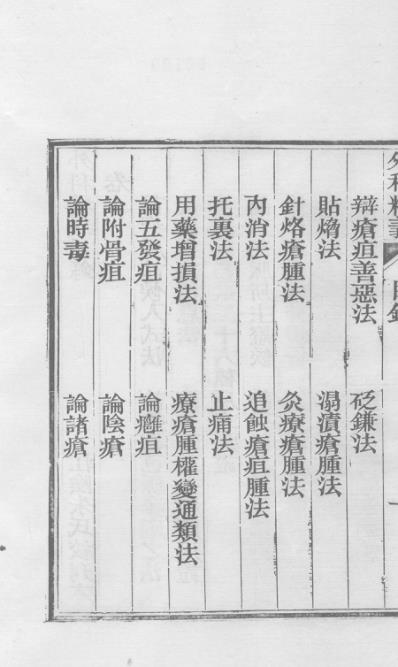 外科精義 目錄 一
辯瘡疽善惡法 砭鎌法
貼熁法 溻漬瘡腫法
針烙瘡腫法 灸療瘡腫法
內消法 追蝕瘡疽腫法
托裏法 止痛法
用藥增損法 療瘡腫權變通類法
論五發疽 論癰疽
論附骨疽 論陰瘡
論時毒 論諸瘡